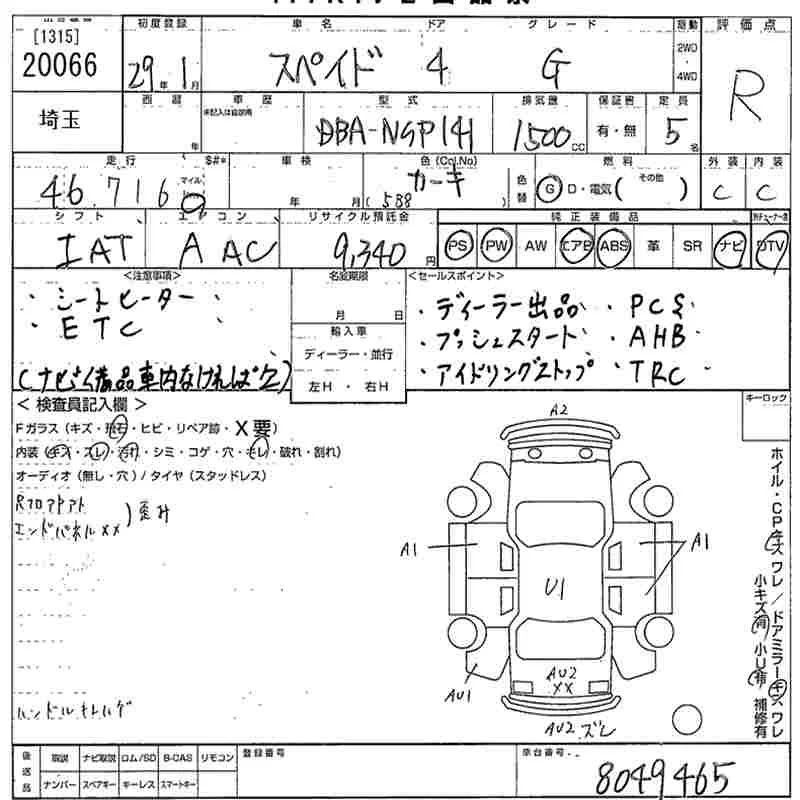 初度登録 車名 ドア グレード 駆動 評価点
[1315]
20066
29年 1月 スペイド 4 G 2WD・4WD R
埼玉
西暦 車歴 型式 排気量 保証書 定員
年 DBA-NSP141 1500cc 有・無 5名
走行 S#* 車検 色(Col.No) 燃料 外装 内装
46,716 マイル km 年 月 カーキ (588) 色替 G D・電気( その他 ) C C
シフト エアコン リサイクル預託金 純正装備品
IAT AAC 9,340円 PS PW AW エアB ABS 革 SR ナビ DTV
<注意事項> 名変期限 <セールスポイント>
・シートヒーター
・ETC
(ナビ、備品車内なければ欠)
月 日
輸入車
ディーラー・並行
左H ・ 右H
・ディーラー出品 ・PCS
・プッシュスタート ・AHB
・アイドリングストップ ・TRC
<検査員記入欄> キーロック
Fガラス(キズ・飛石・ヒビ・リペア跡・X要)
内装(キズ・スレ・汚れ・シミ・コゲ・穴・モレ・破れ・割れ)
オーディオ(無し・穴)/タイヤ(スタッドレス)
Rフロアトアト
エンドパネルXX
歪み
ハンドルキトハゲ
A2
A1
A1
U1
AU1
AU2
XX
AU2 ズレ
ホイル・CPキズワレ/ドアミラーキズワレ
小キズ有 小U有 補修有
後送品 取説 ナビ取説 ロム/SD B-CAS リモコン
ナンバー スペアキー キーレス スマートキー
登録番号 車台番号
8049465